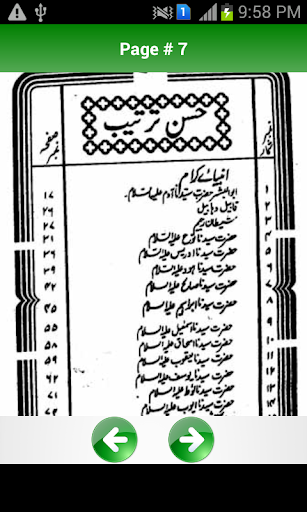 9:58 PM
Page # 7
حسن ترتیب
نمبر شمار
صفحہ نمبر
انبیائے کرام
۱ ابوالبشر حضرت سیدنا آدم علیہ السلام ۱۷
۲ قابیل و ہابیل ۲۶
۳ شیطان رجیم ۲۷
۴ حضرت سیدنا نوح علیہ السلام
حضرت سیدنا ادریس علیہ السلام
حضرت سیدنا ہود علیہ السلام
حضرت سیدنا صالح علیہ السلام
حضرت سیدنا ابراہیم علیہ السلام ۴۴
حضرت سیدنا اسمٰعیل علیہ السلام ۵۵
حضرت سیدنا اسحاق علیہ السلام ۵۸
حضرت سیدنا یعقوب علیہ السلام ۵۹
۱۲ حضرت سیدنا یوسف علیہ السلام ۶۲
حضرت سیدنا لوط علیہ السلام ۷۱
۱۴ حضرت سیدنا ایوب علیہ السلام